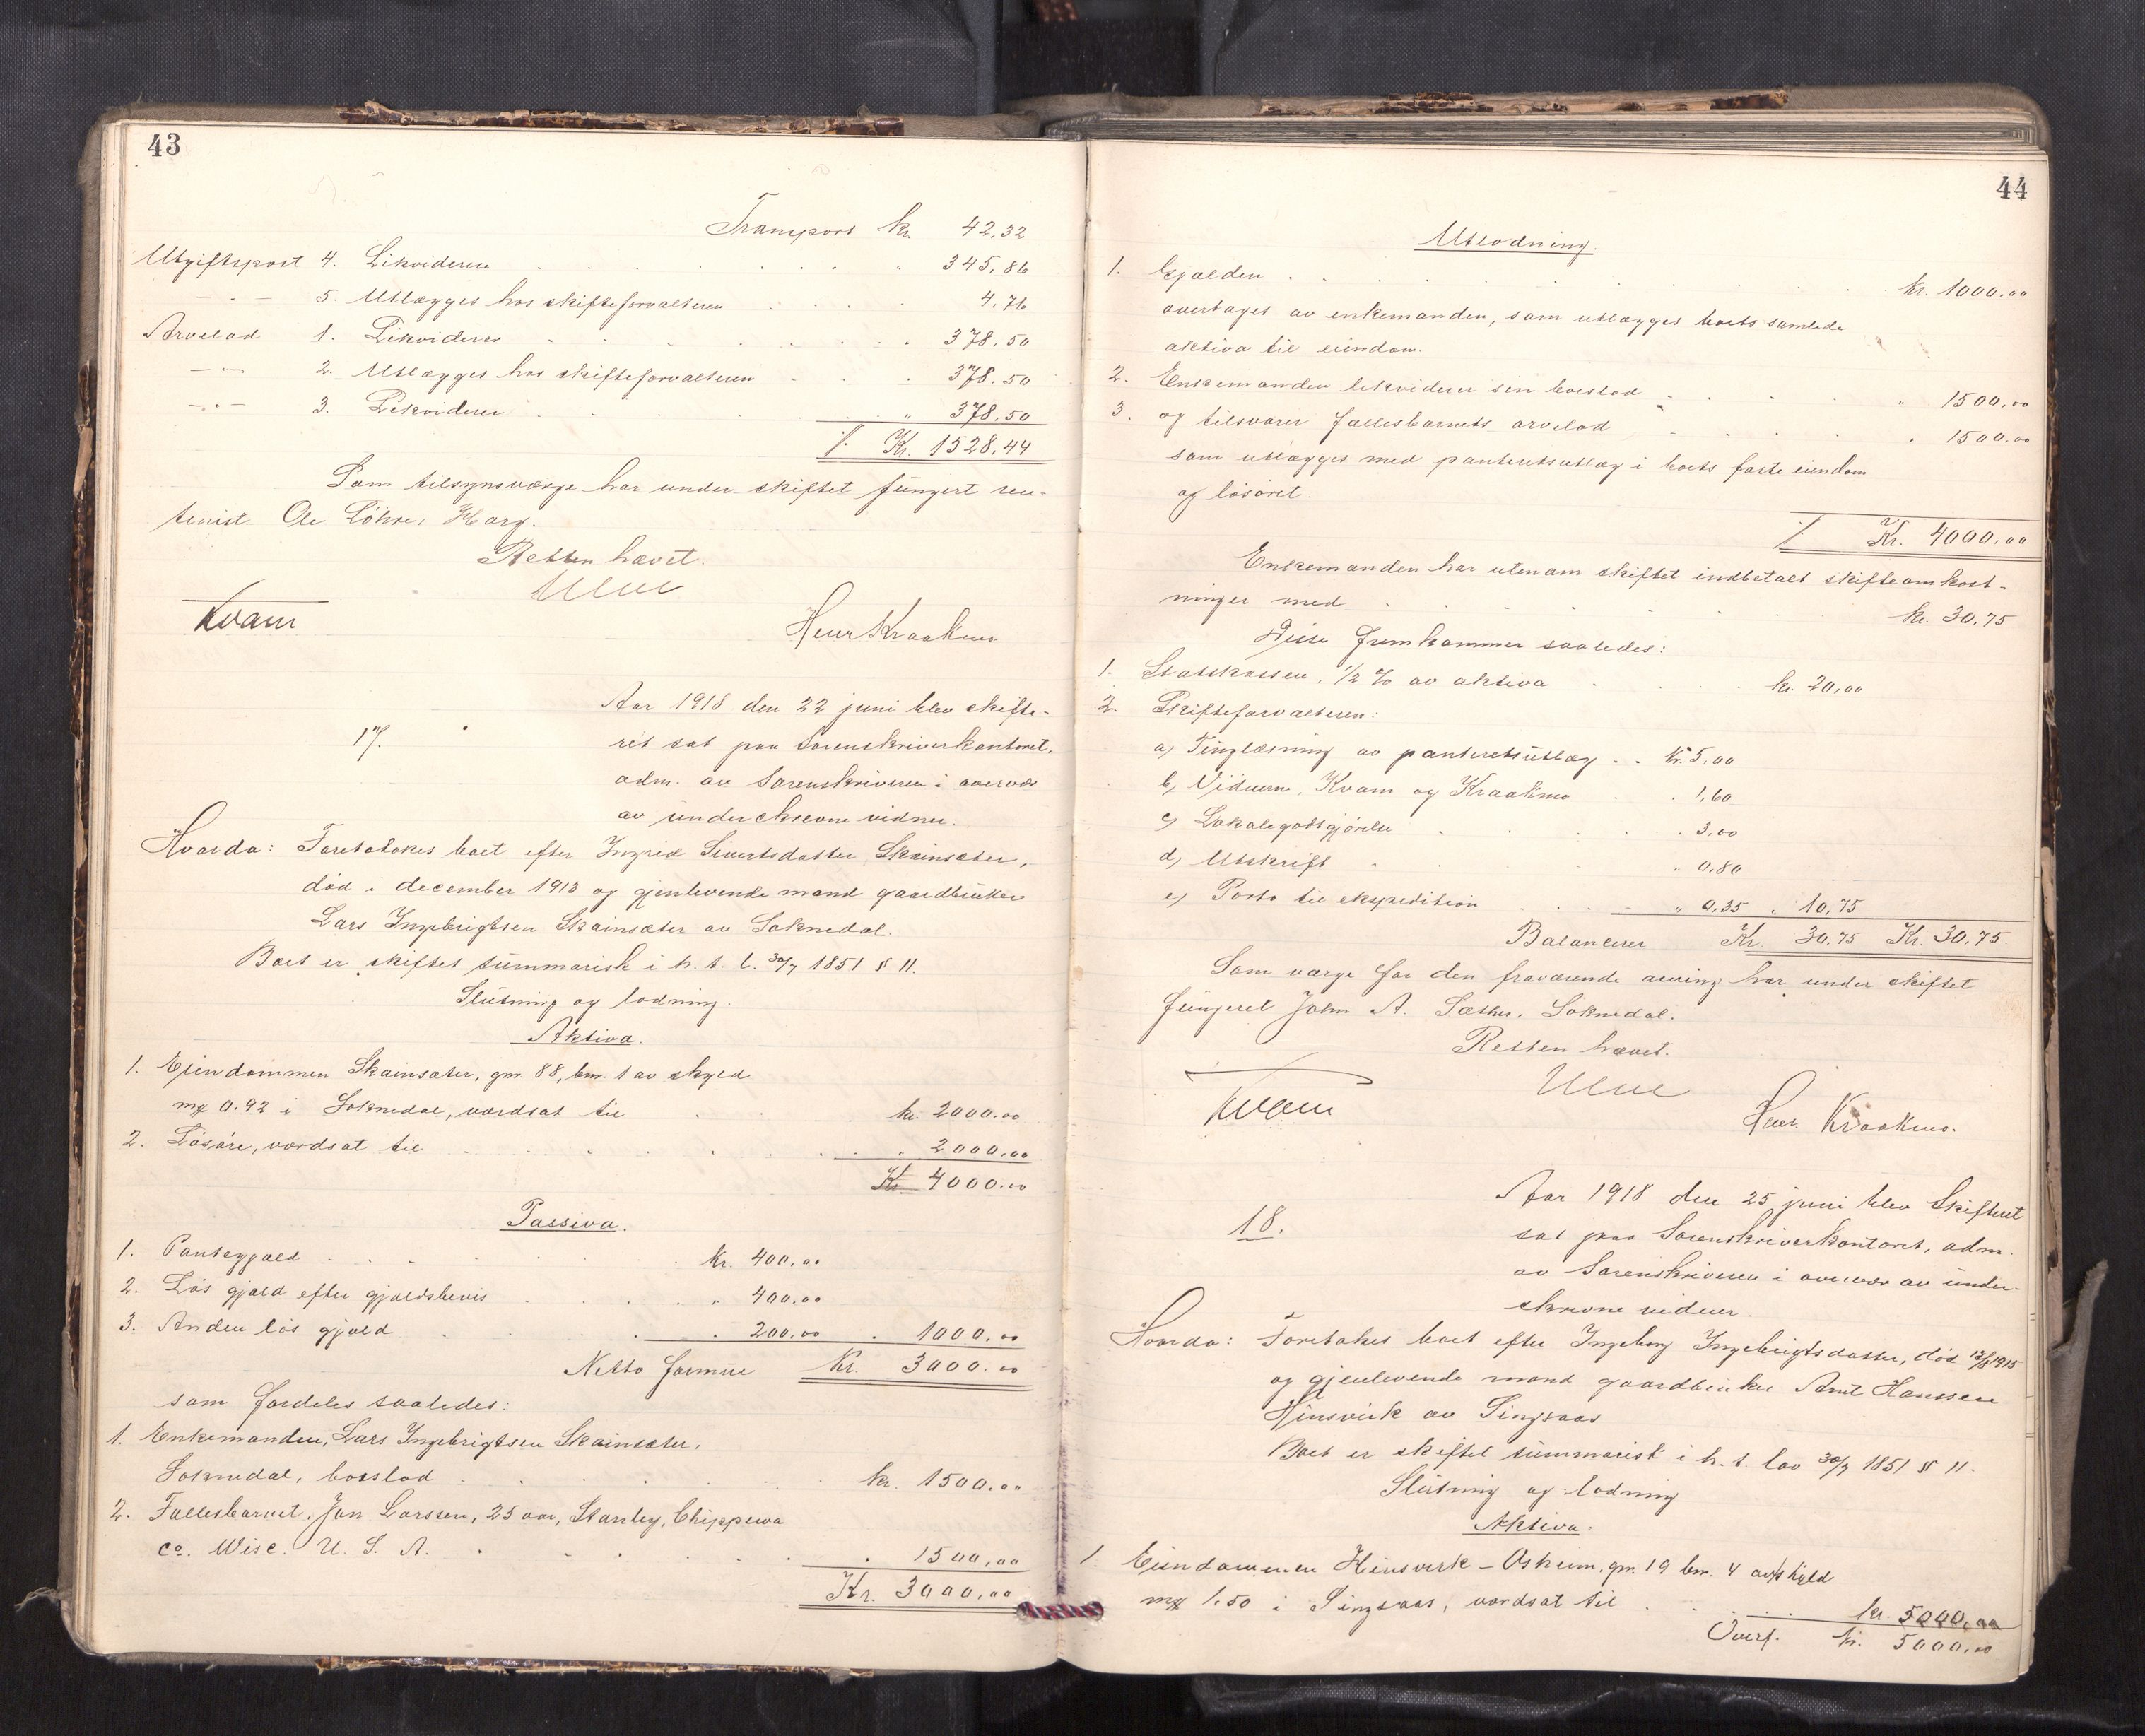 43
Transport kr. 42.32
Utgiftspost 4. Likvideren . . . " 345.86
— " — 5. Utlægges hos skifteforvalteren . . 4.76
Arvelod 1. Likviderer . . . 378.50
— " — 2. Utlægges hos skifteforvalteren . . . 378.50
— " — 3. Likviderer . . . " 378.50
./. Kr. 1528.44
Som tilsynsværge har under skiftet fungert ren-
tenist Ole Løhre, Horg.
Retten hævet.
Ulve
Kvam
Henr Kraakmo
17.
Aar 1918 den 22 juni blev skifte-
ret sat paa Sorenskriverkontoret,
adm. av Sorenskriveren i overvær
av underskrevne vidner.
Hvorda: Foretokes boet efter Ingrid Sivertsdatter Skainsæter,
död i december 1913 og gjenlevende mand gaardbruker
Lars Ingebrigtsen Skainsæter av Soknedal.
Boet er skiftet summarisk i h. t. l. 30/7 1851 § 11.
Slutning og lodning.
Aktiva.
1. Eiendommen Skainsæter, gnr. 88, bnr. 1 av skyld
mk 0.92 i Soknedal, værdsat til . . kr. 2000.00
2. Lösöre, værdsat til . . . 2000.00
Kr. 4000.00
Passiva.
1. Pantegjæld . . . Kr. 400.00
2. Lös gjæld efter gjældsbevis . . . " 400.00
3. Anden lös gjæld . . . 200.00 . 1000.00
Netto formue Kr. 3000.00
som fordeles saaledes:
1. Enkemanden, Lars Ingebrigtsen Skainsæter,
Soknedal, boeslod . . . kr. 1500.00
2. Fællesbarnet, Jon Larssen, 25 aar, Stanley, Chippewa
co. Wisc. U. S. A. . . . 1500.00
Kr. 3000.00
44
Utlodning.
1. Gjælden . . . kr. 1000.00
overtages av enkemanden, som utlægges boets samlede
aktiva til eiendom.
2. Enkemanden likviderer sin boeslod . . . " 1500.00
3. og tilsvarer fællesbarnets arvelod . . . 1500.00
som utlægges med panteretsutlæg i boets faste eiendom
og lösöret.
./. Kr. 4000.00
Enkemanden har utenom skiftet indbetalt skifteomkost-
ninger med . . . kr. 30.75
Disse fremkommer saaledes:
1. Statskassen, 1/2 % av aktiva . . . kr. 20.00
2. Skifteforvalteren:
a) Tinglæsning av panteretsutlæg . . kr. 5.00
b) Vidnerne, Kvam og Kraakmo . . 1.60
c) Lokalegodtgjörelse . . . 3.00
d) Utskrift . . . " 0.80
e) Porto til ekspedition . . . " 0.35 " 10.75
Balancerer Kr. 30.75 Kr. 30.75
Som værge for den fraværende arving har under skiftet
fungeret John A. Sæther, Soknedal.
Retten hævet.
Ulve
Kvam
Henr. Kraakmo.
18.
Aar 1918 den 25 juni blev Skifteret
sat paa Sorenskriverkontoret, adm.
av Sorenskriveren i overvær av under-
skrevne vidner.
Hvorda: Foretokes boet efter Ingeborg Ingebrigtsdatter, död 1915
og gjenlevende mand gaardbruker Arnt Hanssen
Hinsverk av Singsaas
Boet er skiftet summarisk i h. t. lov 30/7 1851 § 11.
Slutning og lodning
Aktiva.
1. Eiendommen Hinsverk - Oskeim, gnr. 19 bnr. 4 av skyld
mk 1.50 i Singsaas, værdsat til . . . kr. 5000.00
Overf. kr. 5000.00